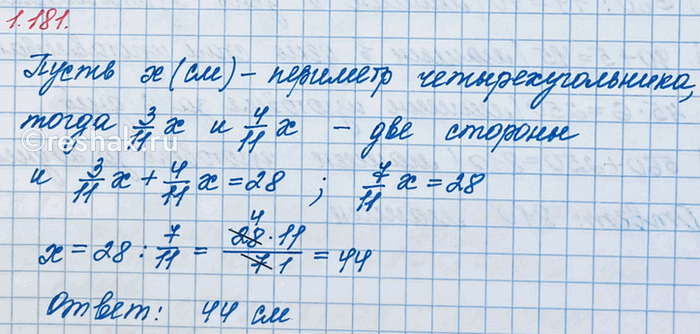 1.181.
Пусть x (см) – периметр четырехугольника,
тогда 3/11 x и 4/11 x – две стороны
©reshak.ru
и 3/11 x + 4/11 x = 28 ; 7/11 x = 28
x = 28 : 7/11 = 28 4 · 11 / 7 1 = 44
Ответ: 44 см